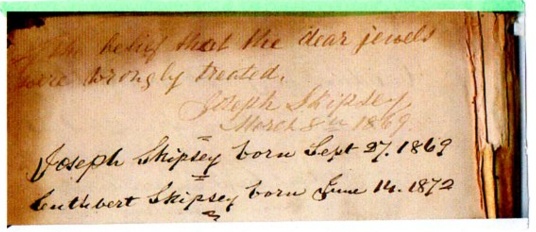 the belief that the dear jewels
were wrongly treated.
Joseph Skipsey
March 8th 1869
Joseph Skipsey born Sept 27. 1869
Cuthbert Skipsey born June 14. 1872